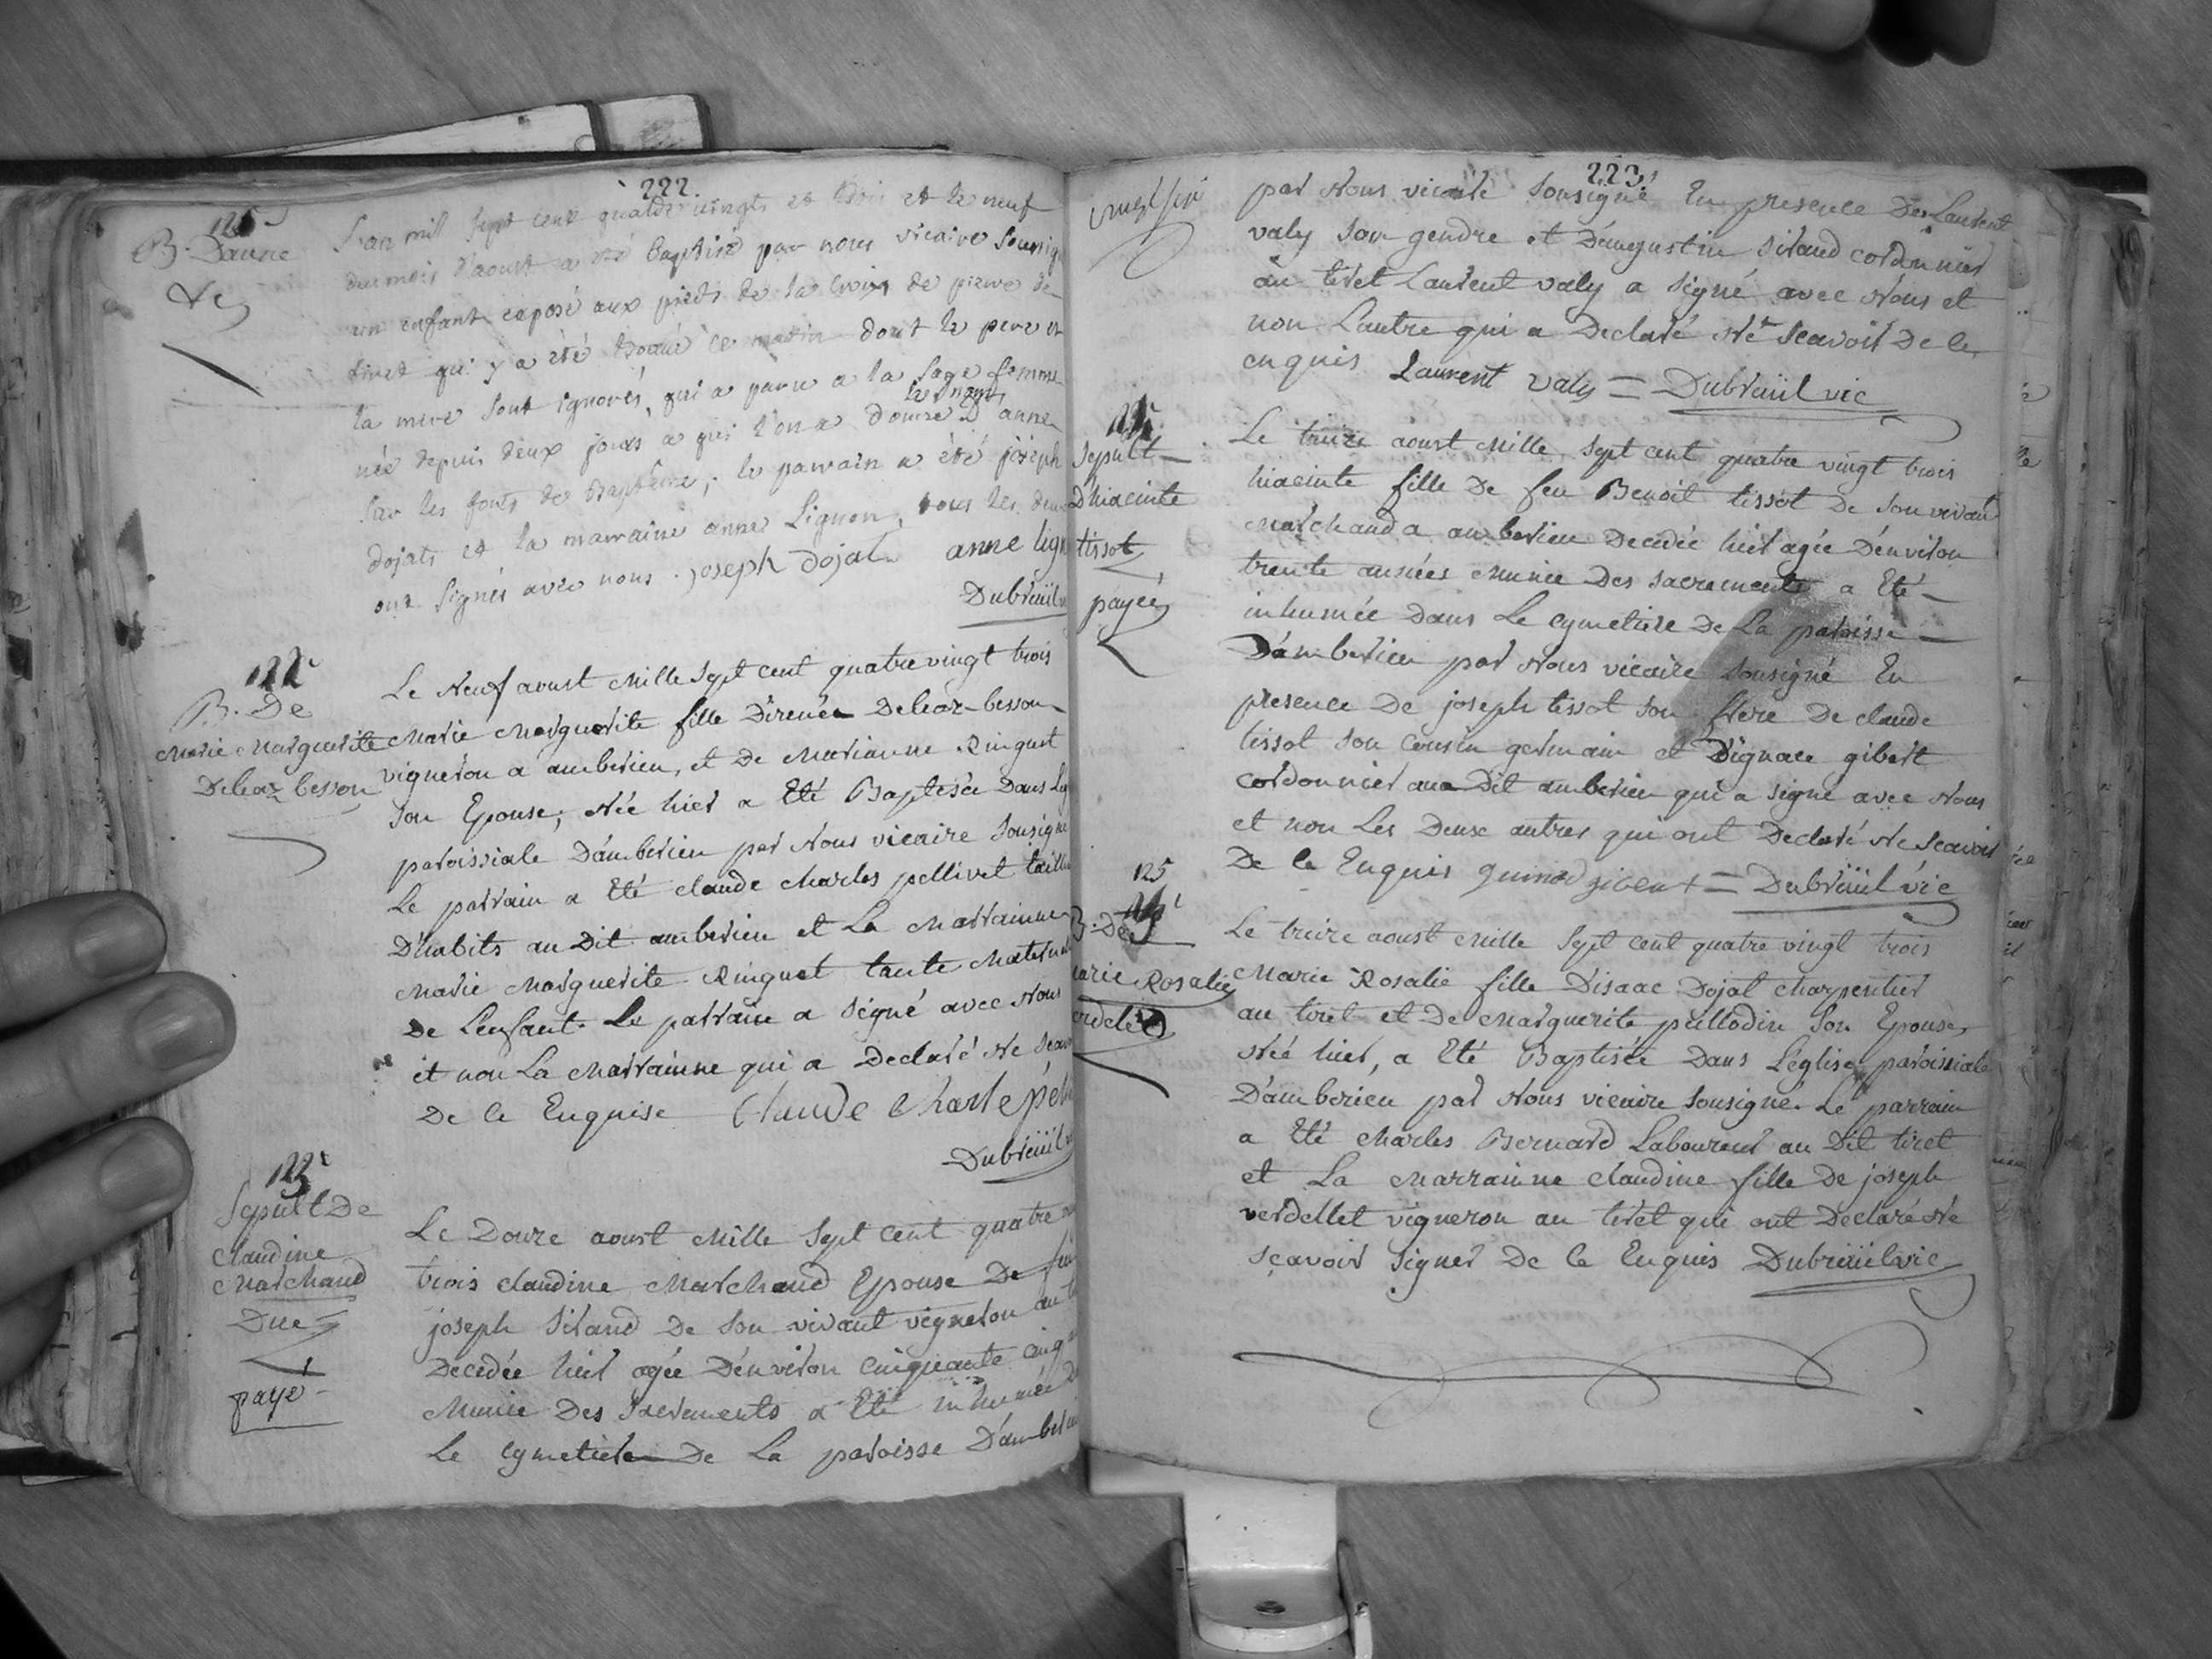 222.
125
B. Danne
L'an mil sept cent quatre vingts et trois et le neuf
du mois d'aoust a été baptisé par nous vicaire soussig
un enfant exposé aux pieds de la croix de pierre de
tiret qui y a été trouvé ce matin dont le pere et
la mere sont ignorés, qui a paru a la sage femme
née depuis deux jours a qui l'on a donné le nom d'anne
sur les fonts de Baptême; le parrain a été joseph
dojat et la marraine anne Lignon, tous les deux
ont signés avec nous. joseph Dojat anne lign
Dubreüil
122
B. De
Marie Marguerite
Deleaz besson
Le Neuf aoust Mille Sept cent quatre vingt trois
Marie Marguerite fille D'irenée Deleaz-besson
vigneron a amberieu, et de Marianne Ringuet
Son Epouse, Née hier a Eté Baptisée Dans L'eg
paroissiale D'amberieu par Nous vicaire Sousigné
Le parrain a Eté claude charles pellivet taille
D'habits au Dit amberieu et La Marrainne
Marie Marguerite Ringuet tante Maternel
De L'enfant. Le parrain a Signé avec Nous
et non La Marrainne qui a Declaré Ne Scav
De ce Enquise Claude Charle pel
Dubreüil
123
Sepult De
Claudine
Marchand
Due
payé
Le Douze aoust Mille Sept cent quatre
trois claudine Marchand Epouse De feu
joseph Siraud De Son vivant vigneron au
Decedée hier agée D'environ cinquante cinq
Munie Des Sacrements a Eté inhumée
Le cymetiere De La paroisse D'amber
223
par Nous vicaire Sousigné En presence De Laurent
valy Son gendre et D'augustin Siraud cordonnier
au tiret Laurent valy a Signé avec Nous et
non L'autre qui a Declaré Ne Scavoir De ce
enquis Laurent valy = Dubreüil vic
Sepult
D'hiacinte
tissot
payée
Le treize aoust Mille Sept cent quatre vingt trois
hiacinte fille De feu Benoit tissot De Son vivant
Marchand a amberieu Decedée hier agée D'environ
trente années Munie Des Sacrements a Eté
inhumée Dans Le cymetiere De La paroisse
D'amberieu par Nous vicaire Sousigné En
presence De joseph tissot Son frere De claude
tissot Son cousin germain et D'ignace gibert
cordonnier au Dit amberieu qui a Signé avec Nous
et non Les Deux autres qui ont Declaré Ne Scavoir
De ce Enquis gibert = Dubreüil vic
125
B. De
arie Rosalie
Le treize aoust Mille Sept cent quatre vingt trois
Marie Rosalie fille D'isaac Dojat Charpentier
au tiret et De Marguerite pellodin Son Epouse,
Née hier, a Eté Baptisée Dans L'eglise paroissiale
D'amberieu par Nous vicaire Sousigné. Le parrain
a Eté Charles Bernard Laboureur au Dit tiret
et La Marrainne claudine fille De joseph
verdellet vigneron au tiret qui ont Declaré Ne
Sçavoir Signer De ce Enquis Dubreüil vic